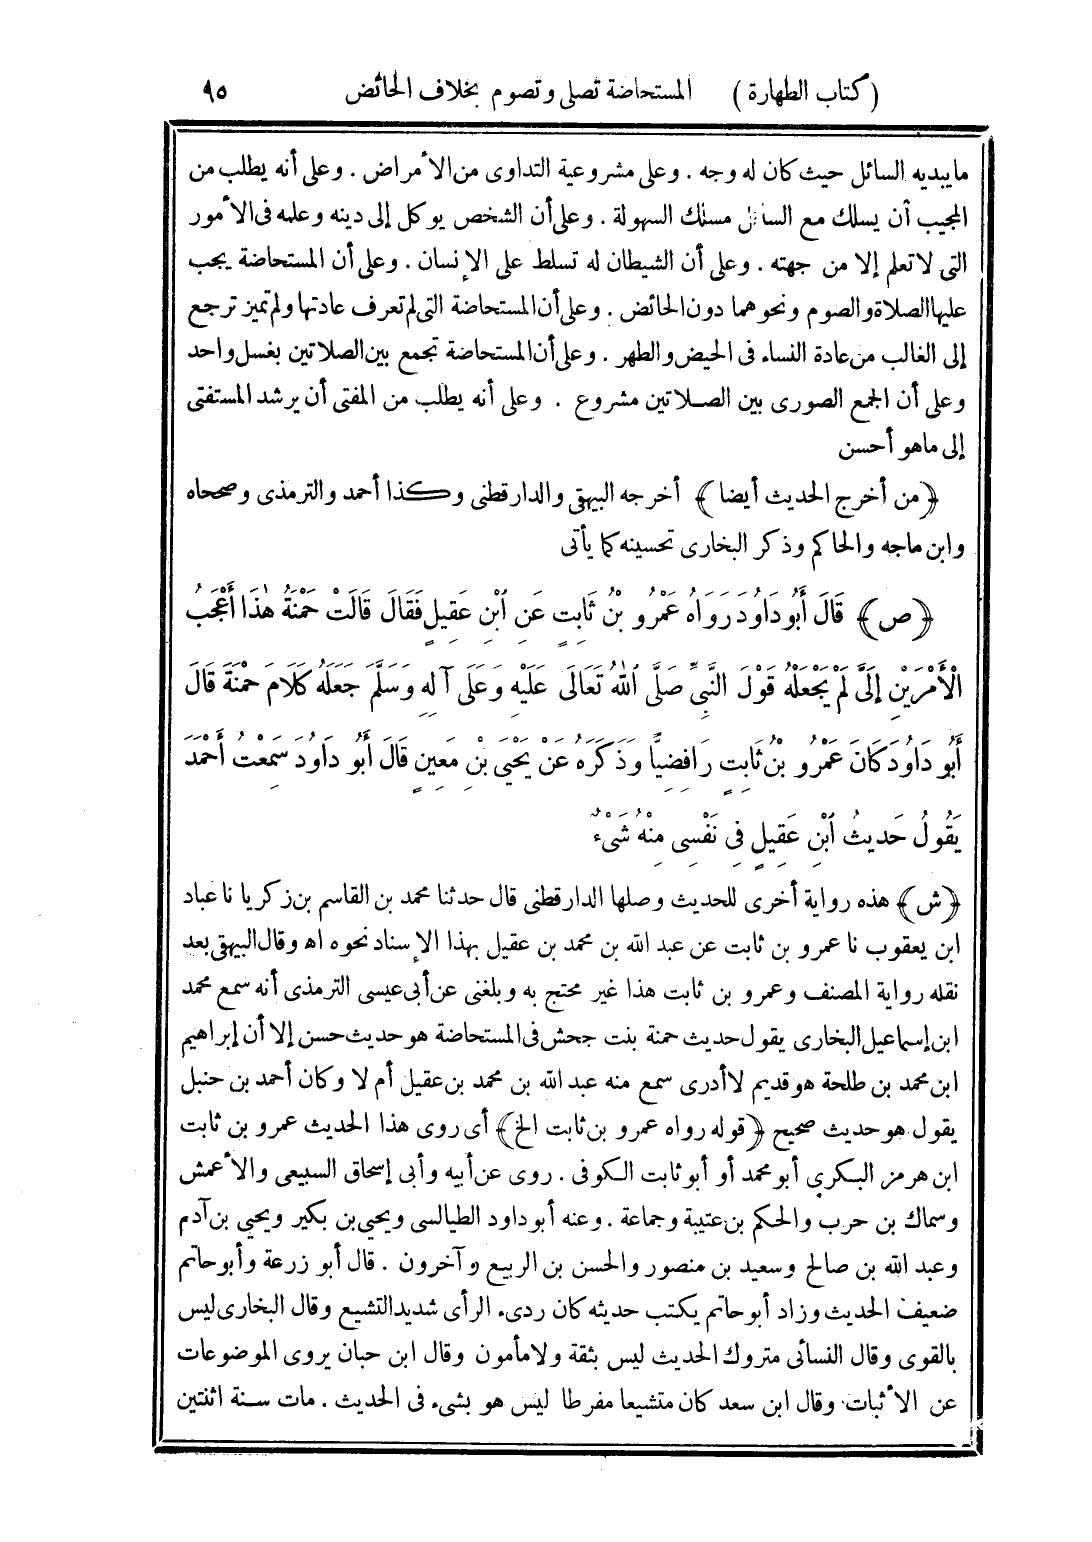 (كتاب الطهارة) المستحاضة تصلى وتصوم بخلاف الحائض ٩٥
مايبديه السائل حيث كان له وجه . وعلى مشروعية التداوى من الأمراض . وعلى أنه يطلب من
المجيب أن يسلك مع السائل مسلك السهولة . وعلى أن الشخص يوكل إلى دينه وعلمه فى الأمور
التى لاتعلم إلا من جهته . وعلى أن الشيطان له تسلط على الإنسان . وعلى أن المستحاضة يجب
عليها الصلاة والصوم ونحوهما دون الحائض . وعلى أن المستحاضة التى لم تعرف عادتها ولم تميز ترجع
إلى الغالب من عادة النساء فى الحيض والطهر . وعلى أن المستحاضة تجمع بين الصلاتين بغسل واحد
وعلى أن الجمع الصورى بين الصلاتين مشروع . وعلى أنه يطلب من المفتى أن يرشد المستفتى
إلى ماهو أحسن
﴿من أخرج الحديث أيضا﴾ أخرجه البيهقى والدارقطنى وكذا أحمد والترمذى وصححاه
وابن ماجه والحاكم وذكر البخارى تحسينه كما يأتى
﴿ص﴾ قَالَ أَبُو دَاوُدَ رَوَاهُ عَمْرُو بْنُ ثَابِتٍ عَنِ ابْنِ عَقِيلٍ فَقَالَ قَالَتْ حَمْنَةُ هٰذَا أَعْجَبُ
الْأَمْرَيْنِ إِلَىَّ لَمْ يَجْعَلْهُ قَوْلَ النَّبِىِّ صَلَّى اللهُ تَعَالَى عَلَيْهِ وَعَلَى آلِهِ وَسَلَّمَ جَعَلَهُ كَلَامَ حَمْنَةَ قَالَ
أَبُو دَاوُدَ كَانَ عَمْرُو بْنُ ثَابِتٍ رَافِضِيًّا وَذَكَرَهُ عَنْ يَحْيَى بْنِ مَعِينٍ قَالَ أَبُو دَاوُدَ سَمِعْتُ أَحْمَدَ
يَقُولُ حَدِيثُ ابْنِ عَقِيلٍ فِى نَفْسِى مِنْهُ شَىْءٌ
﴿ش﴾ هذه رواية أخرى للحديث وصلها الدارقطنى قال حدثنا محمد بن القاسم بن زكريا نا عباد
ابن يعقوب نا عمرو بن ثابت عن عبد الله بن محمد بن عقيل بهذا الإسناد نحوه اه وقال البيهقى بعد
نقله رواية المصنف وعمرو بن ثابت هذا غير محتج به وبلغنى عن أبى عيسى الترمذى أنه سمع محمد
ابن إسماعيل البخارى يقول حديث حمنة بنت جحش فى المستحاضة هو حديث حسن إلا أن إبراهيم
ابن محمد بن طلحة هو قديم لا أدرى سمع منه عبد الله بن محمد بن عقيل أم لا وكان أحمد بن حنبل
يقول هو حديث صحيح ﴿قوله رواه عمرو بن ثابت الخ﴾ أى روى هذا الحديث عمرو بن ثابت
ابن هرمز البكري أبو محمد أو أبو ثابت الكوفى . روى عن أبيه وأبى إسحاق السبيعى والأعمش
وسماك بن حرب والحكم بن عتيبة وجماعة . وعنه أبو داود الطيالسى ويحيى بن بكير ويحيى بن آدم
وعبد الله بن صالح وسعيد بن منصور والحسن بن الربيع وآخرون . قال أبو زرعة وأبو حاتم
ضعيف الحديث وزاد أبو حاتم يكتب حديثه كان ردىء الرأى شديد التشيع وقال البخارى ليس
بالقوى وقال النسائى متروك الحديث ليس بثقة ولا مأمون وقال ابن حبان يروى الموضوعات
عن الأثبات وقال ابن سعد كان متشيعا مفرطا ليس هو بشىء فى الحديث . مات سنة اثنتين